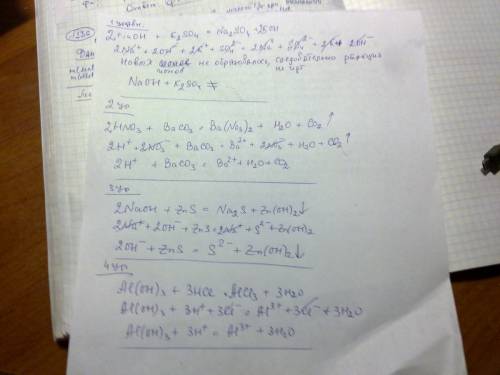 1 уравн.
2NaOH + K₂SO₄ = Na₂SO₄ + 2KOH
2Na⁺ + 2OH⁻ + 2K⁺ + SO₄²⁻ = 2Na⁺ + SO₄²⁻ + 2K⁺ 2OH⁻
Новых ионов не образовалось, следовательно реакция
ионов не идёт
NaOH + K₂SO₄ ≠
2 ур
2HNO₃ + BaCO₃ = Ba(NO₃)₂ + H₂O + CO₂↑
2H⁺ + 2NO₃⁻ + BaCO₃ = Ba²⁺ + 2NO₃⁻ + H₂O + CO₂↑
2H⁺ + BaCO₃ = Ba²⁺ + H₂O + CO₂
3 ур
2NaOH + ZnS = Na₂S + Zn(OH)₂↓
2Na⁺ + 2OH⁻ + ZnS = 2Na⁺ + S²⁻ + Zn(OH)₂
2OH⁻ + ZnS = S²⁻ + Zn(OH)₂↓
4 ур
Al(OH)₃ + 3HCl = AlCl₃ + 3H₂O
Al(OH)₃ + 3H⁺ + 3Cl⁻ = Al³⁺ + 3Cl⁻ + 3H₂O
Al(OH)₃ + 3H⁺ = Al³⁺ + 3H₂O